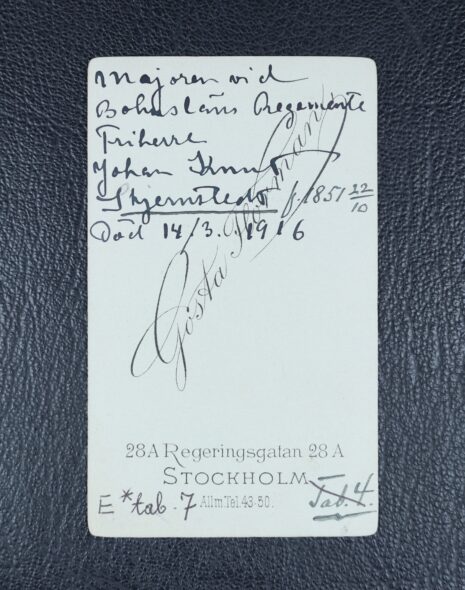 Majoren vid
Bohusläns Regemente
Friherre
Johan Knut
Stjernstedt f. 1851 22/10
Död 14/3. 1916
Gösta Florman
28A Regeringsgatan 28A
STOCKHOLM
E *tab. 7
Allm.Tel.43.50.
Tab. 4.